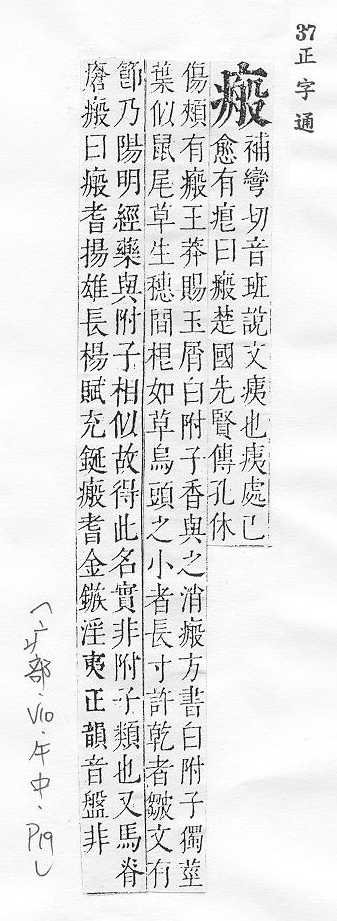 37正字通
瘢
補彎切音班說文痍也痍處已
愈有疤曰瘢楚國先賢傳孔休
傷頰有瘢王莽賜玉屑白附子香與之消瘢方書白附子獨莖
葉似鼠尾草生穗間根如草烏頭之小者長寸許乾者皺文有
節乃陽明經藥與附子相似故得此名實非附子類也又馬脊
瘡瘢曰瘢耆揚雄長楊賦充鋋瘢耆金鏃淫夷正韻音盤非
(疒部·V10·午中·P19)